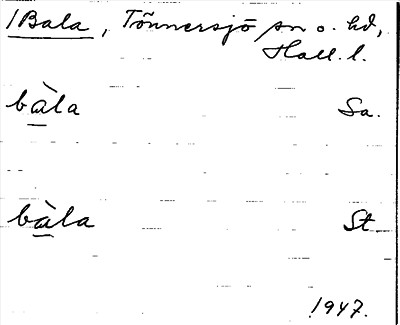 /Bala, Tönnersjö sn o. hd,
Hall. l.
bàla Sa.
bàla St
1947.